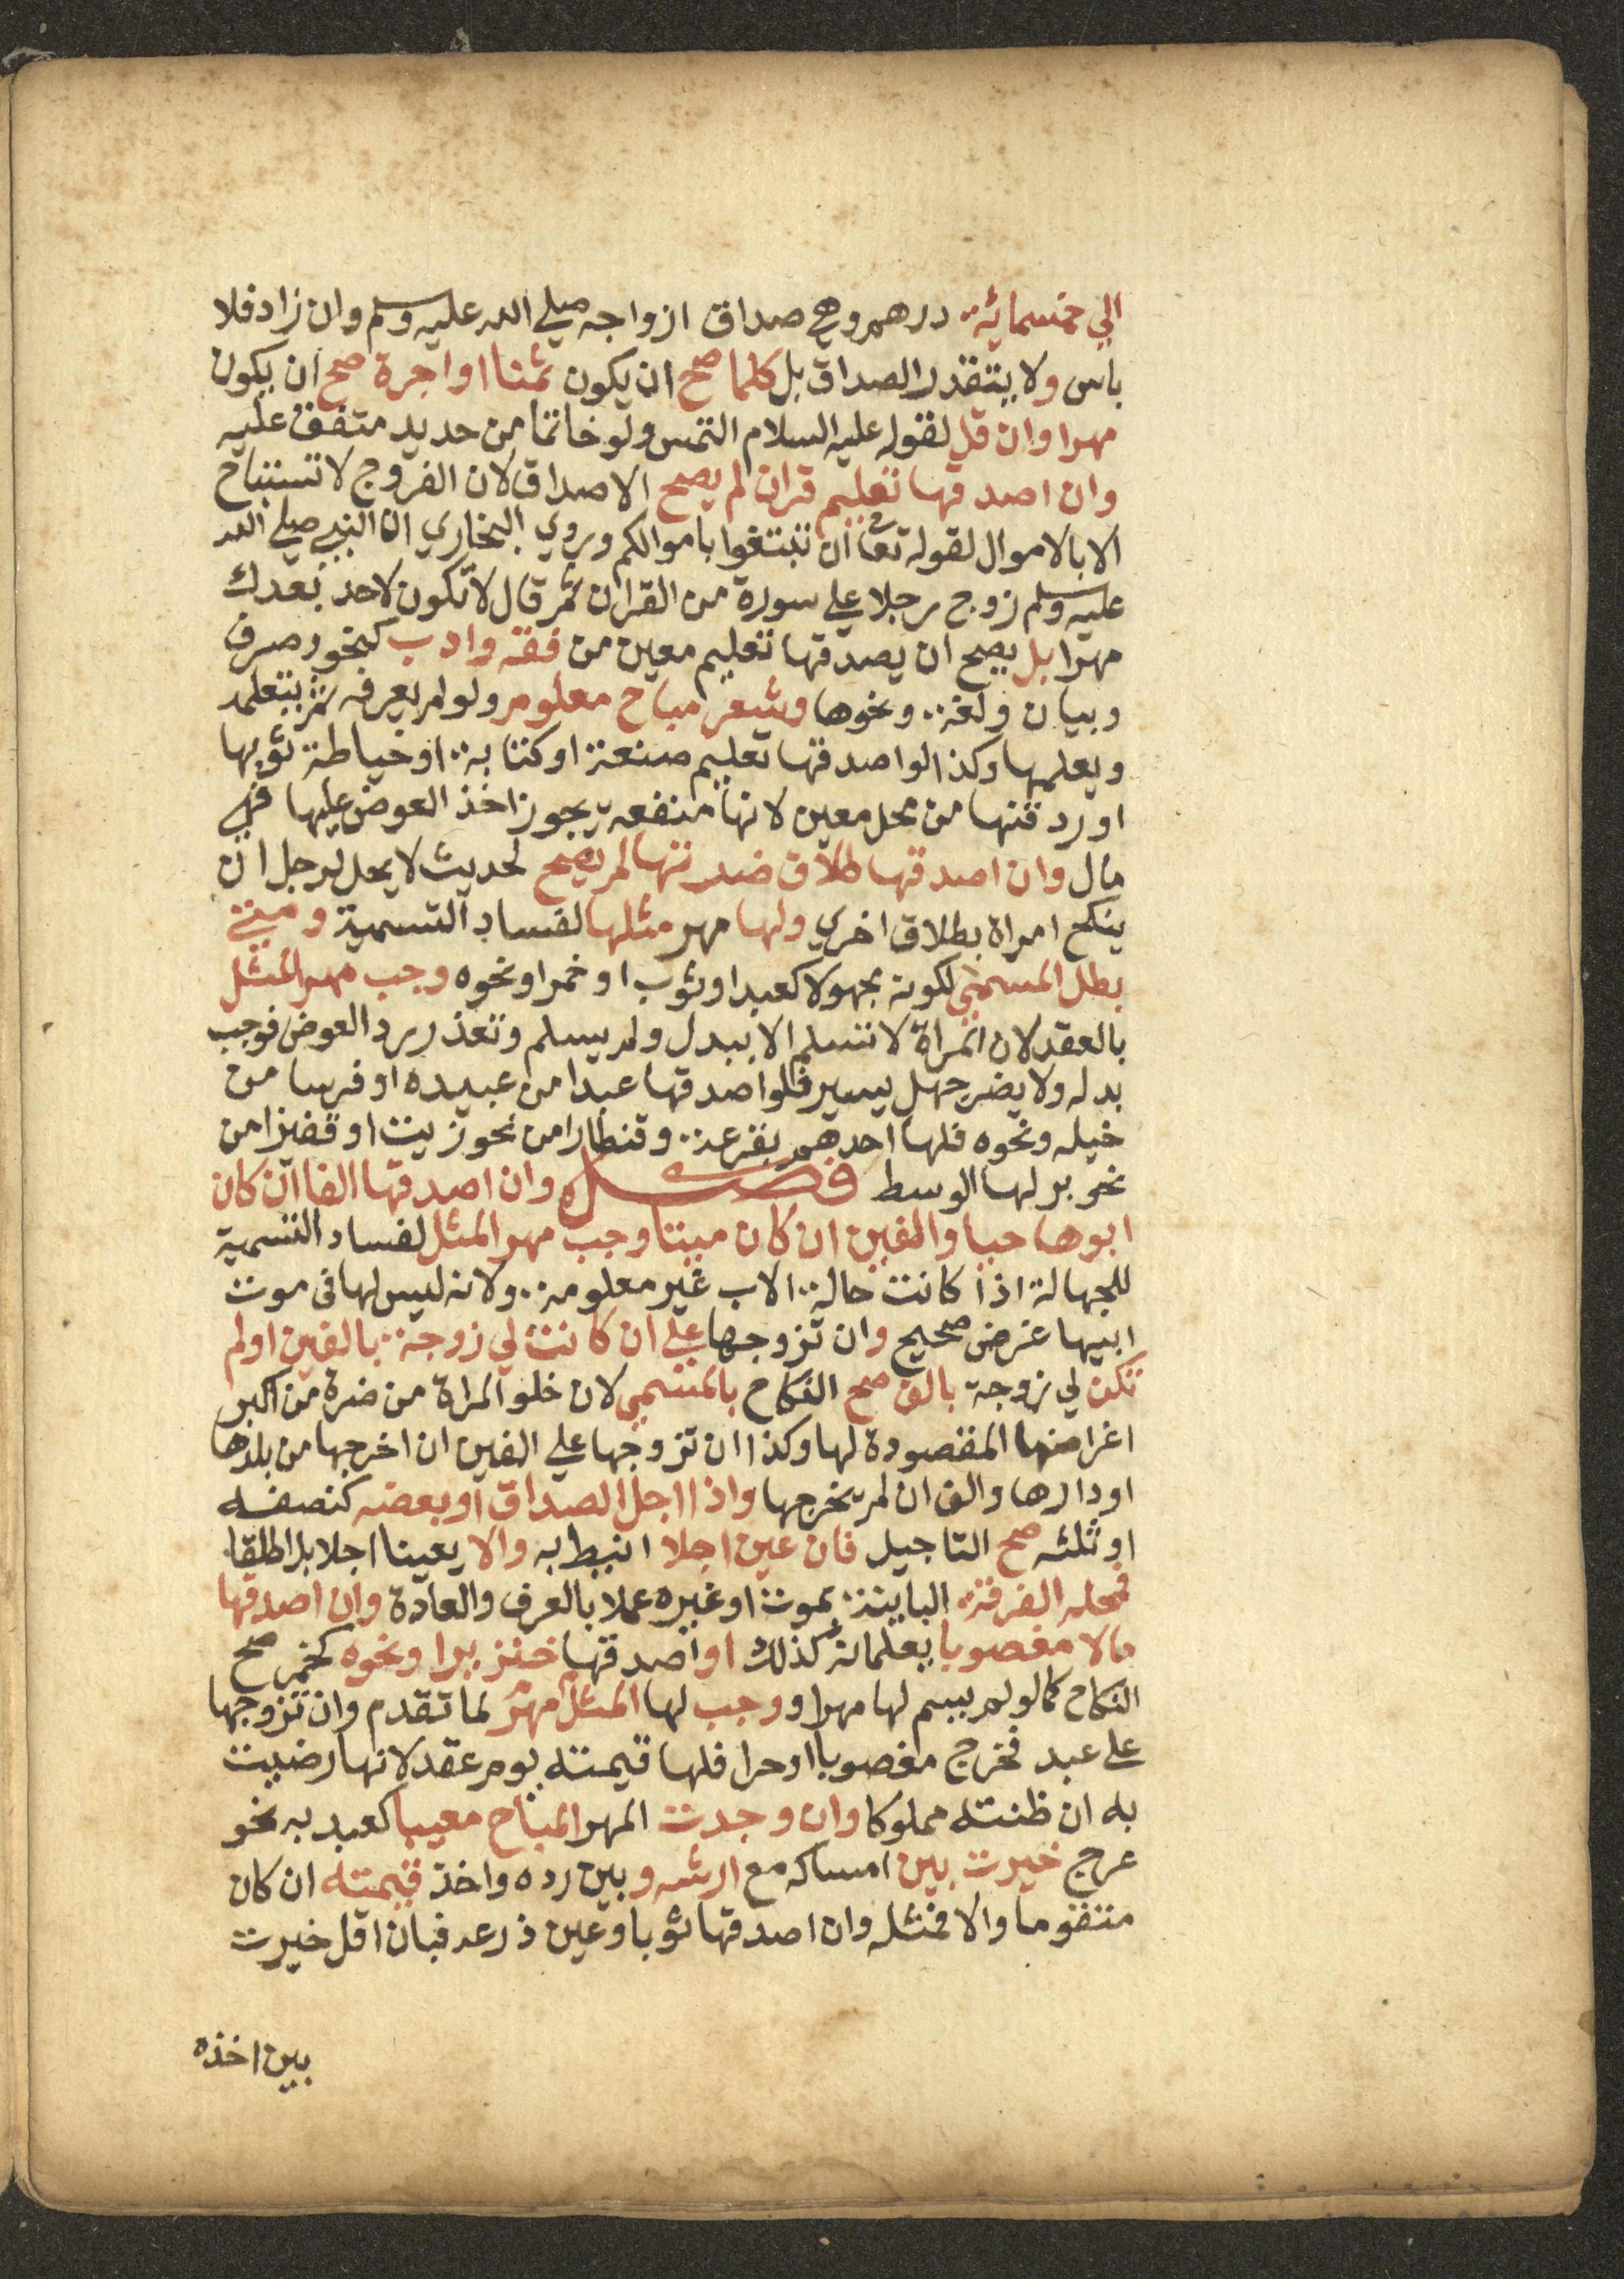 الي خمسمائة درهم وهي صداق ازواجه صلي الله عليه وسلم وان زاد فلا
باس ولا يتقدر الصداق بل كلما صح ان يكون ثمنا او اجرة صح ان يكون
مهرا وان قل لقوله عليه السلام التمس ولو خاتما من حديد متفق عليه
وان اصدقها تعليم قران لم يصح الاصداق لان الفروج لا تستباح
الا بالاموال لقوله تعا ان تبتغوا باموالكم وروي البخاري ان النبي صلي الله
عليه وسلم زوج رجلا علي سورة من القران ثم قال لا تكون لاحد بعدك
مهرا بل يصح ان يصدقها تعليم معين من فقه وادب كنحو وصرف
وبيان ولغة ونحوها وشعر مباح معلوم ولو لم يعرفه ثم يتعلمه
ويعلمها وكذا لو اصدقها تعليم صنعة او كتابة او خياطة ثوبها
او رد قنها من محل معين لانها منفعة يجوز اخذ العوض عليها فهي
مال وان اصدقها طلاق ضرتها لم يصح لحديث لا يحل لرجل ان
ينكح امراة بطلاق اخري ولها مهر مثلها لفساد التسمية ومتي
بطل المسمي لكونه مجهولا كعبد او ثوب او خمرا ونحوه وجب مهر المثل
بالعقد لان المراة لا تسلم الا ببدل ولم يسلم وتعذر رد العوض فوجب
بدله ولا يضر جهل يسير فلو اصدقها عبدا من عبيده او فرسا من
خيله ونحوه فلها احدهم بقرعة وقنطارا من نحو زيت او قفيزا من
نحو بر لها الوسط فصل وان اصدقها الفا ان كان
ابوها حيا والفين ان كان ميتا وجب مهر المثل لفساد التسمية
للجهالة اذا كانت حالة الاب غير معلومة ولانه ليس لها في موت
ابيها غرض صحيح وان تزوجها علي ان كانت لي زوجة بالفين او لم
تكن لي زوجة بالف صح النكاح بالمسمي لان خلو المراة من ضرة من اكبر
اغراضها المقصودة لها وكذا ان تزوجها علي الفين ان اخرجها من بلدها
او دارها والف ان لم يخرجها واذا اجل الصداق او بعضه كنصفه
او ثلثه صح التاجيل فان عين اجلا انيط به والا يعينا اجلا بل اطلقا
فمحله الفرقة البائنة بموت او غيره عملا بالعرف والعادة وان اصدقها
مالا مغصوبا يعلمانه كذلك او اصدقها خنزيرا ونحوه كخمر صح
النكاح كما لو لم يسم لها مهرا ووجب لها المثل مهر لما تقدم وان تزوجها
علي عبد فخرج مغصوبا او حرا فلها قيمته يوم عقد لانها رضيت
به ان ظنته مملوكا وان وجدت المهر المباح معيبا كعبد به نحو
عرج خيرت بين امساكه مع ارشه وبين رده واخذ قيمته ان كان
متقوما والا فمثله وان اصدقها ثوبا وعين ذرعه فبان اقل خيرت
بين اخذه